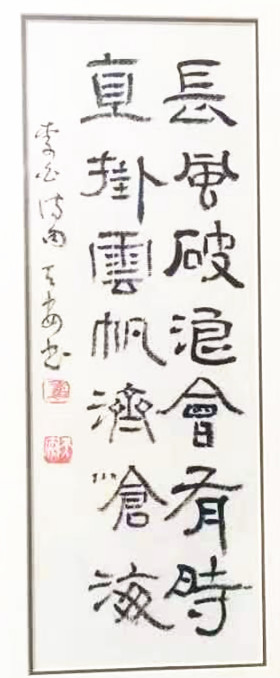 長風破浪會有時
直掛雲帆濟滄海
李白詩句 天安書